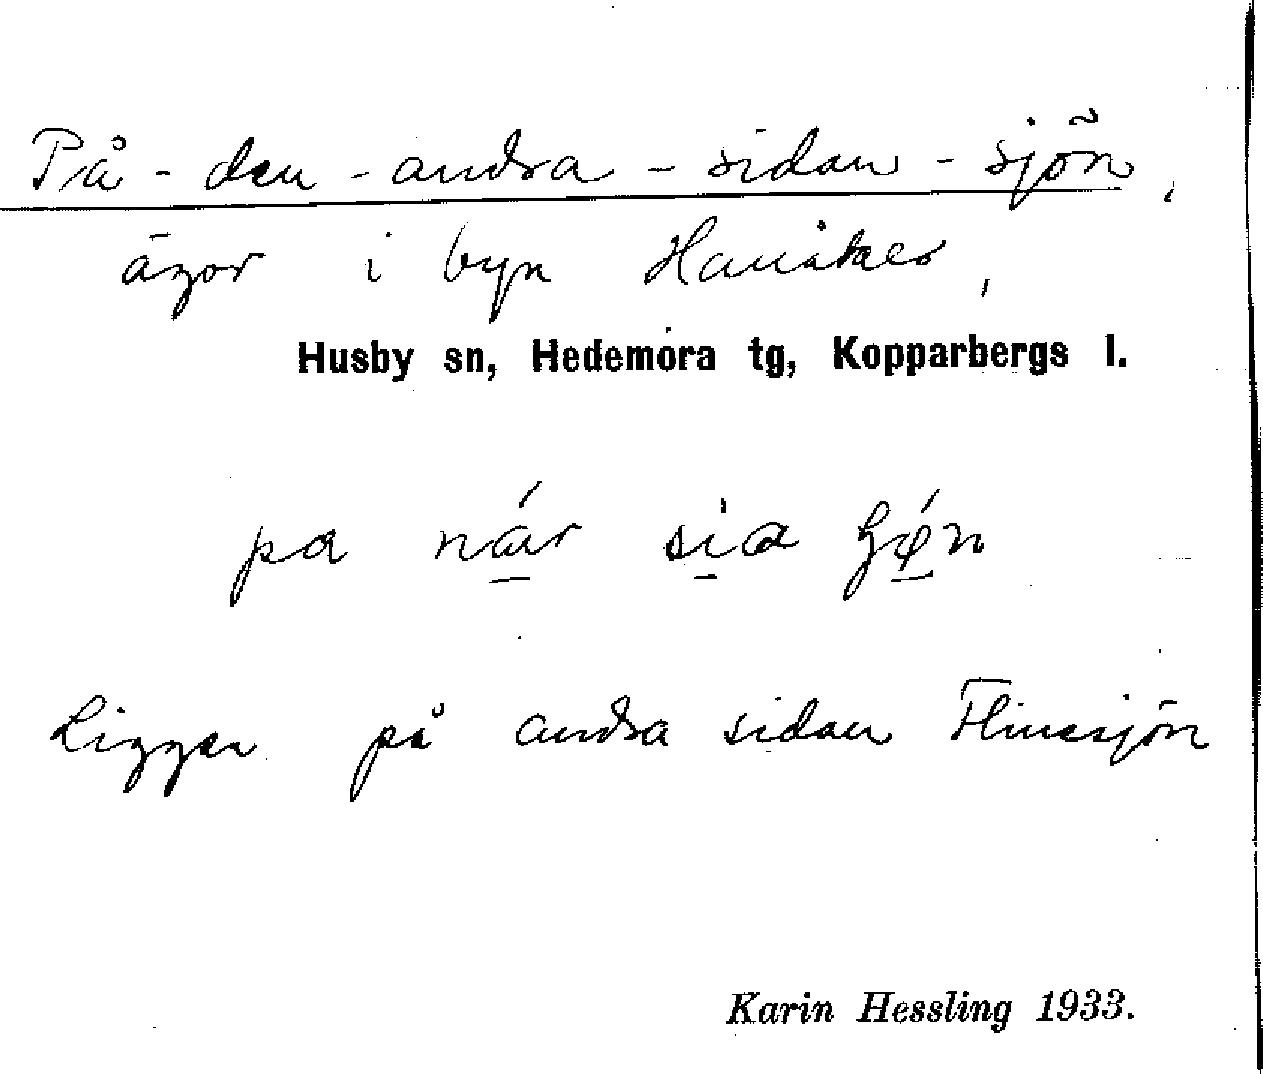 På-den-andra-sidan-sjön,
ägor i byn Hanåker,
Husby sn, Hedemora tg, Kopparbergs l.
pa når sia
Ligger på andra sidan Flinesjön
Karin Hessling 1933.